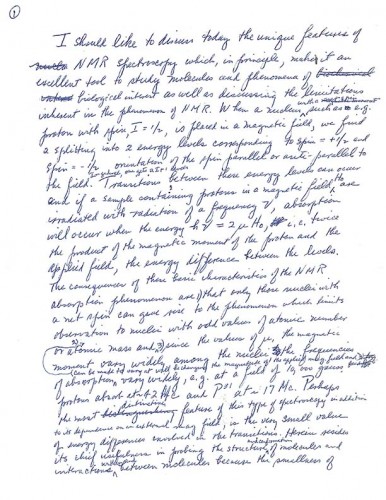 ①
I should like to discuss today the unique features of
NMR spectroscopy which, in principle, makes it an
excellent tool to study molecules and phenomena of
biological interest as well as discussing the limitations
inherent in the phenomenon of NMR. When a nucleus with a net spin such as e.g.
proton with spin, I = 1/2, is placed in a magnetic field, we find
a splitting into 2 energy levels corresponding to spin = +1/2 and
spin = -1/2, orientation of the spin parallel or anti-parallel to
the field. Transitions between these energy levels can occur
and if a sample containing protons in a magnetic field, are
irradiated with radiation of a frequency ν, absorption
will occur when the energy hν = 2μH₀, i.e. twice
the product of the magnetic moment of the proton and the
applied field, the energy difference between the levels.
The consequences of these basic characteristics of the NMR
absorption phenomenon are 1) that only those nuclei with
a net spin can give rise to the phenomenon which limits
observation to nuclei with odd values of atomic number
or atomic mass and 2) since the values of μ, the magnetic
moment, vary widely among the nuclei the frequencies
(can be made to vary at will by changing the magnitude of the applied mag field and
of absorption vary widely, e.g. at a field of 10,000 gauss
proton absorbs at 42 Mc and P31 at 17 Mc. Perhaps
the most feature of this type of spectroscopy in addition
to its dependence on an external mag field, is the very small value
of energy differences involved in the transitions. Herein resides
its chief usefulness in probing the structure of molecules and
interactions between molecules because the smallness of